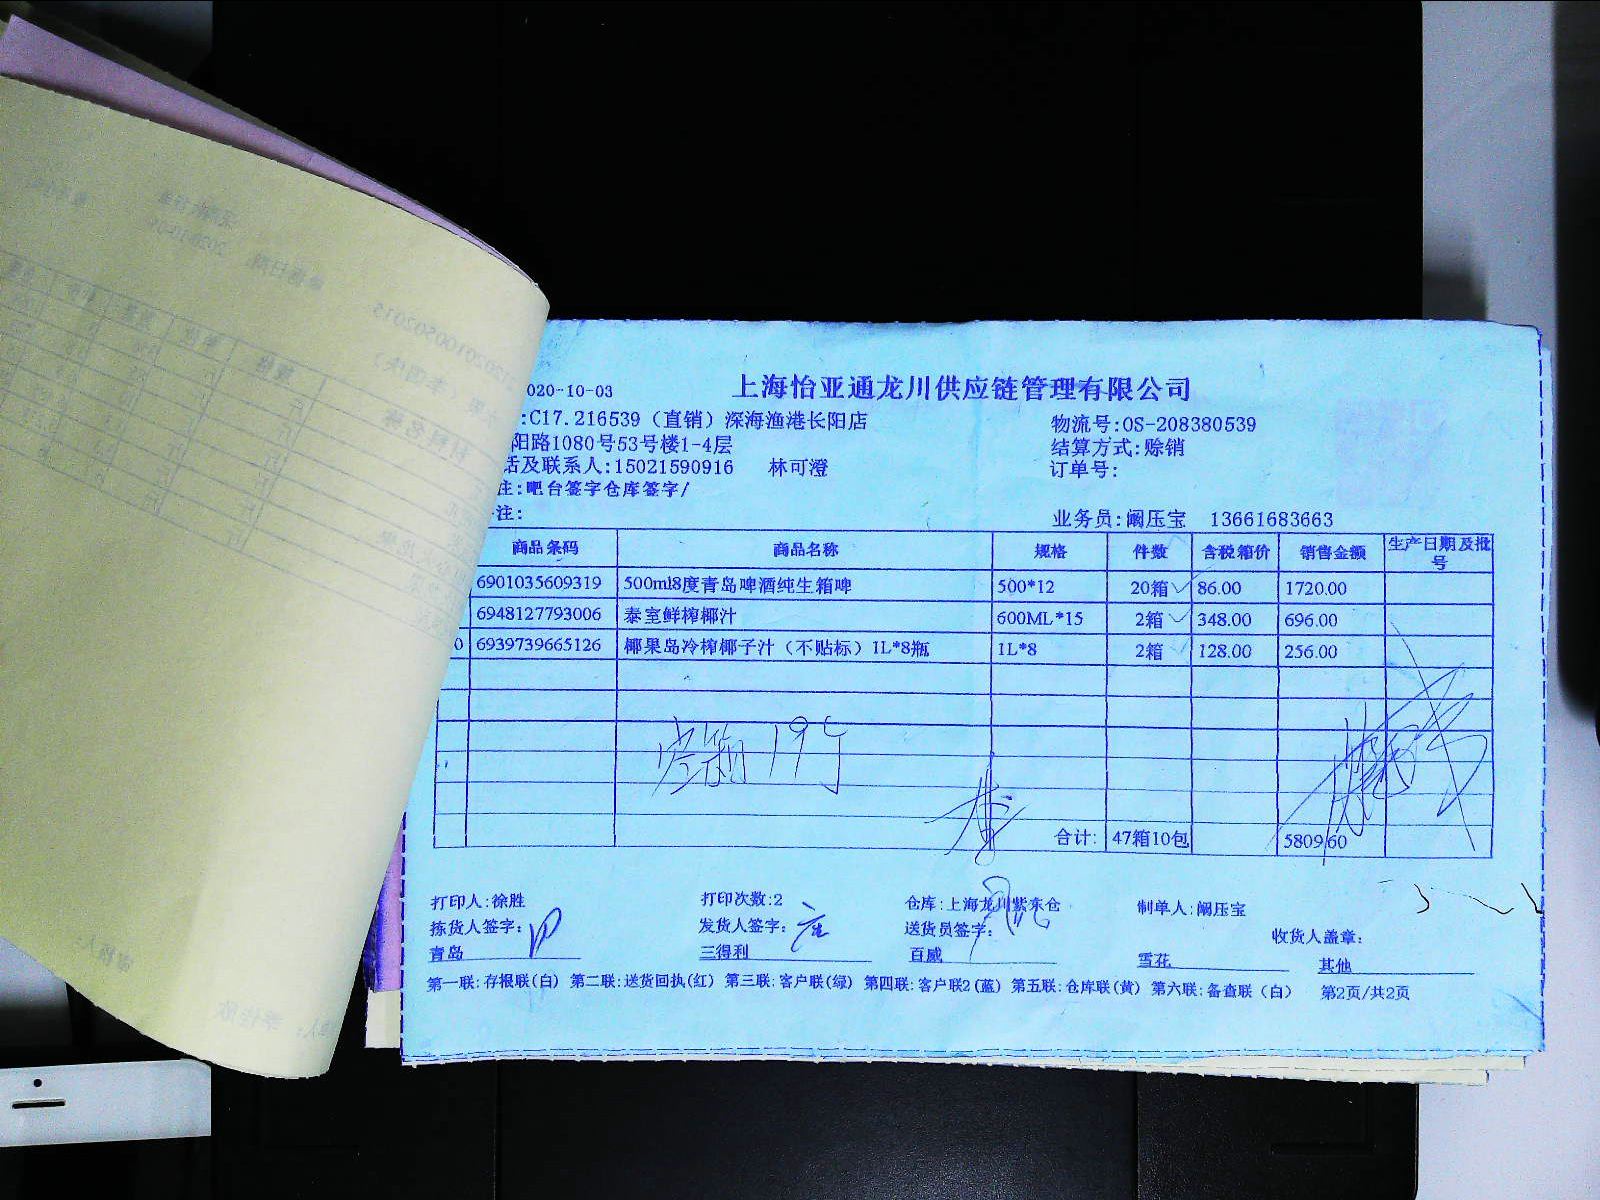 020-10-03
上海怡亚通龙川供应链管理有限公司
:C17.216539（直销）深海渔港长阳店
物流号:OS-208380539
阳路1080号53号楼1-4层
结算方式:赊销
话及联系人:15021590916 林可澄
订单号:
注:吧台签字仓库签字/
注:
业务员:阚压宝 13661683663
商品条码 商品名称 规格 件数 含税箱价 销售金额 生产日期及批号
6901035609319 500ml8度青岛啤酒纯生箱啤 500*12 20箱 86.00 1720.00
6948127793006 泰室鲜榨椰汁 600ML*15 2箱 348.00 696.00
0 6939739665126 椰果岛冷榨椰子汁（不贴标）1L*8瓶 1L*8 2箱 128.00 256.00
空箱19个
合计: 47箱10包 5809.60
打印人:徐胜 打印次数:2 仓库:上海龙川紫东仓 制单人:阚压宝
拣货人签字: 发货人签字: 送货员签字: 收货人盖章:
青岛 三得利 百威 雪花 其他
第一联:存报联(白) 第二联:送货回执(红) 第三联:客户联(绿) 第四联:客户联2(蓝) 第五联:仓库联(黄) 第六联:备查联（白） 第2页/共2页